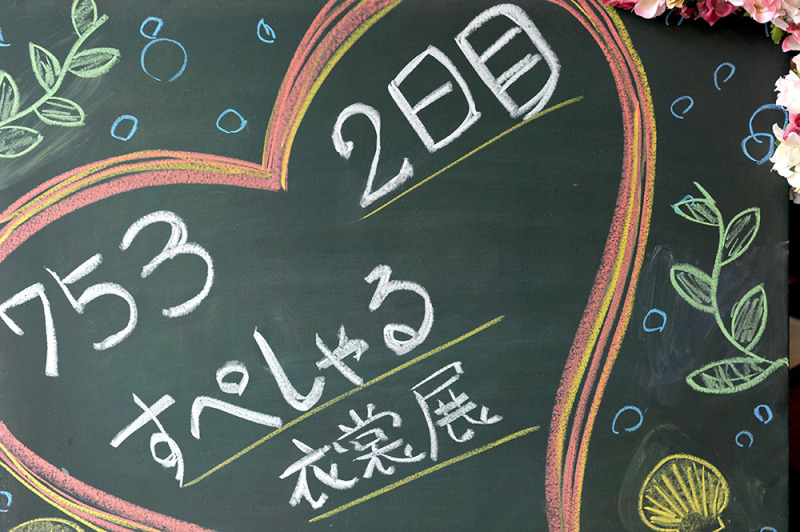 2日目
753
すぺしゃる
衣裳展